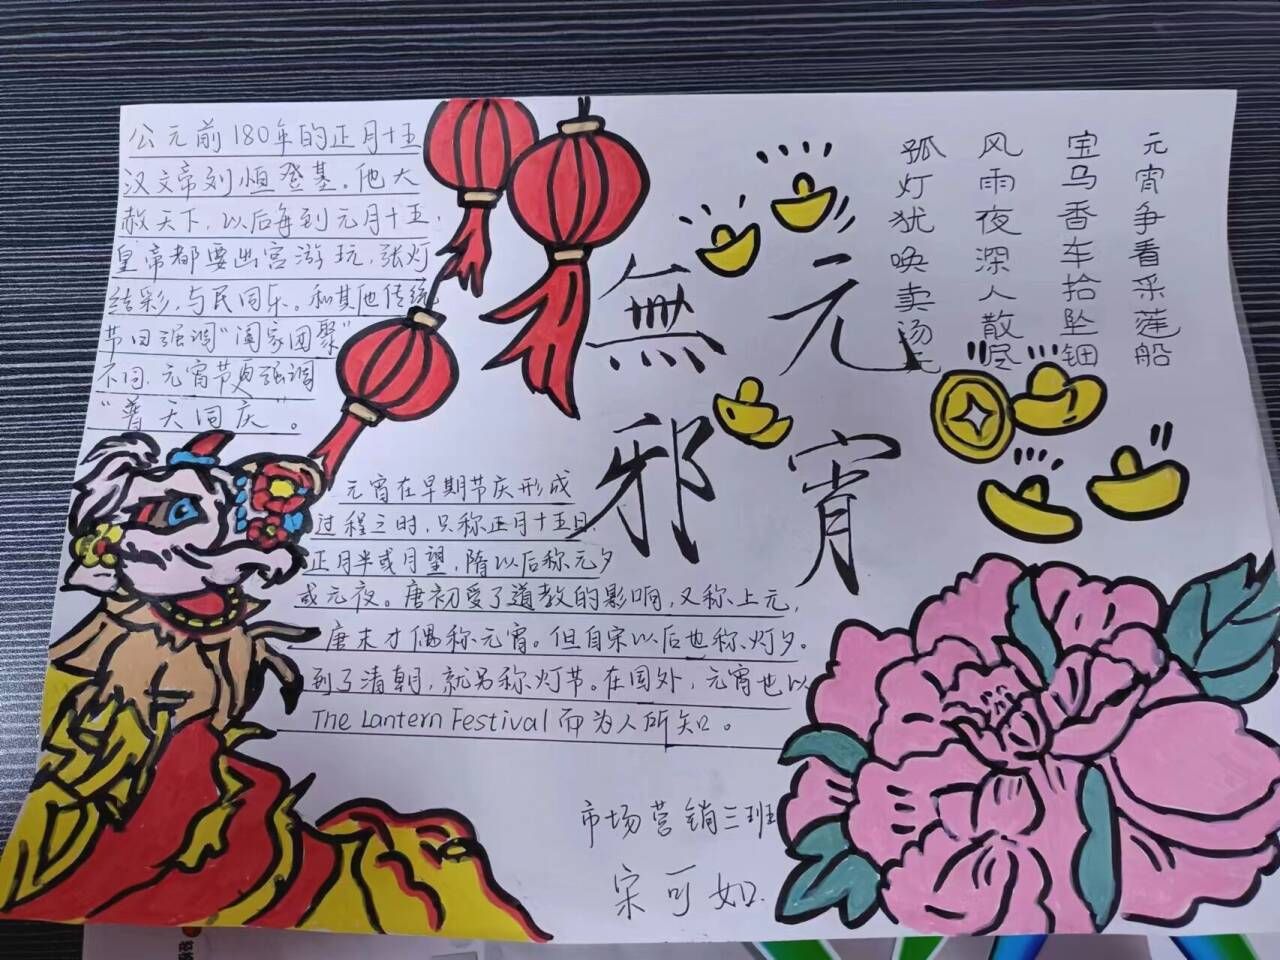 公元前180年的正月十五
汉文帝刘恒登基。他大
赦天下，以后每到元月十五，
皇帝都要出宫游玩，张灯
结彩，与民同乐。和其他传统
节日强调“阖家团聚”
不同，元宵节更强调
“普天同庆”。
元宵争看采莲船
宝马香车拾坠钿
风雨夜深人散尽
孤灯犹唤卖汤
元宵
無邪
元宵在早期节庆形成
过程三时，只称正月十五日
正月半或月望，隋以后称元夕
或元夜。唐初受了道教的影响，又称上元，
唐末才偶称元宵。但自宋以后也称灯夕。
到了清朝，就另称灯节。在国外，元宵也以
The Lantern Festival而为人所知。
市场营销三班
宋可如